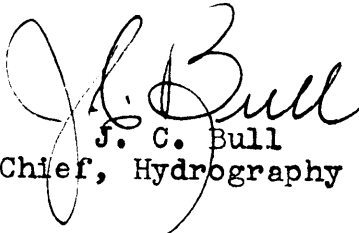 J. C. Bull
J. C. Bull
Chief, Hydrography